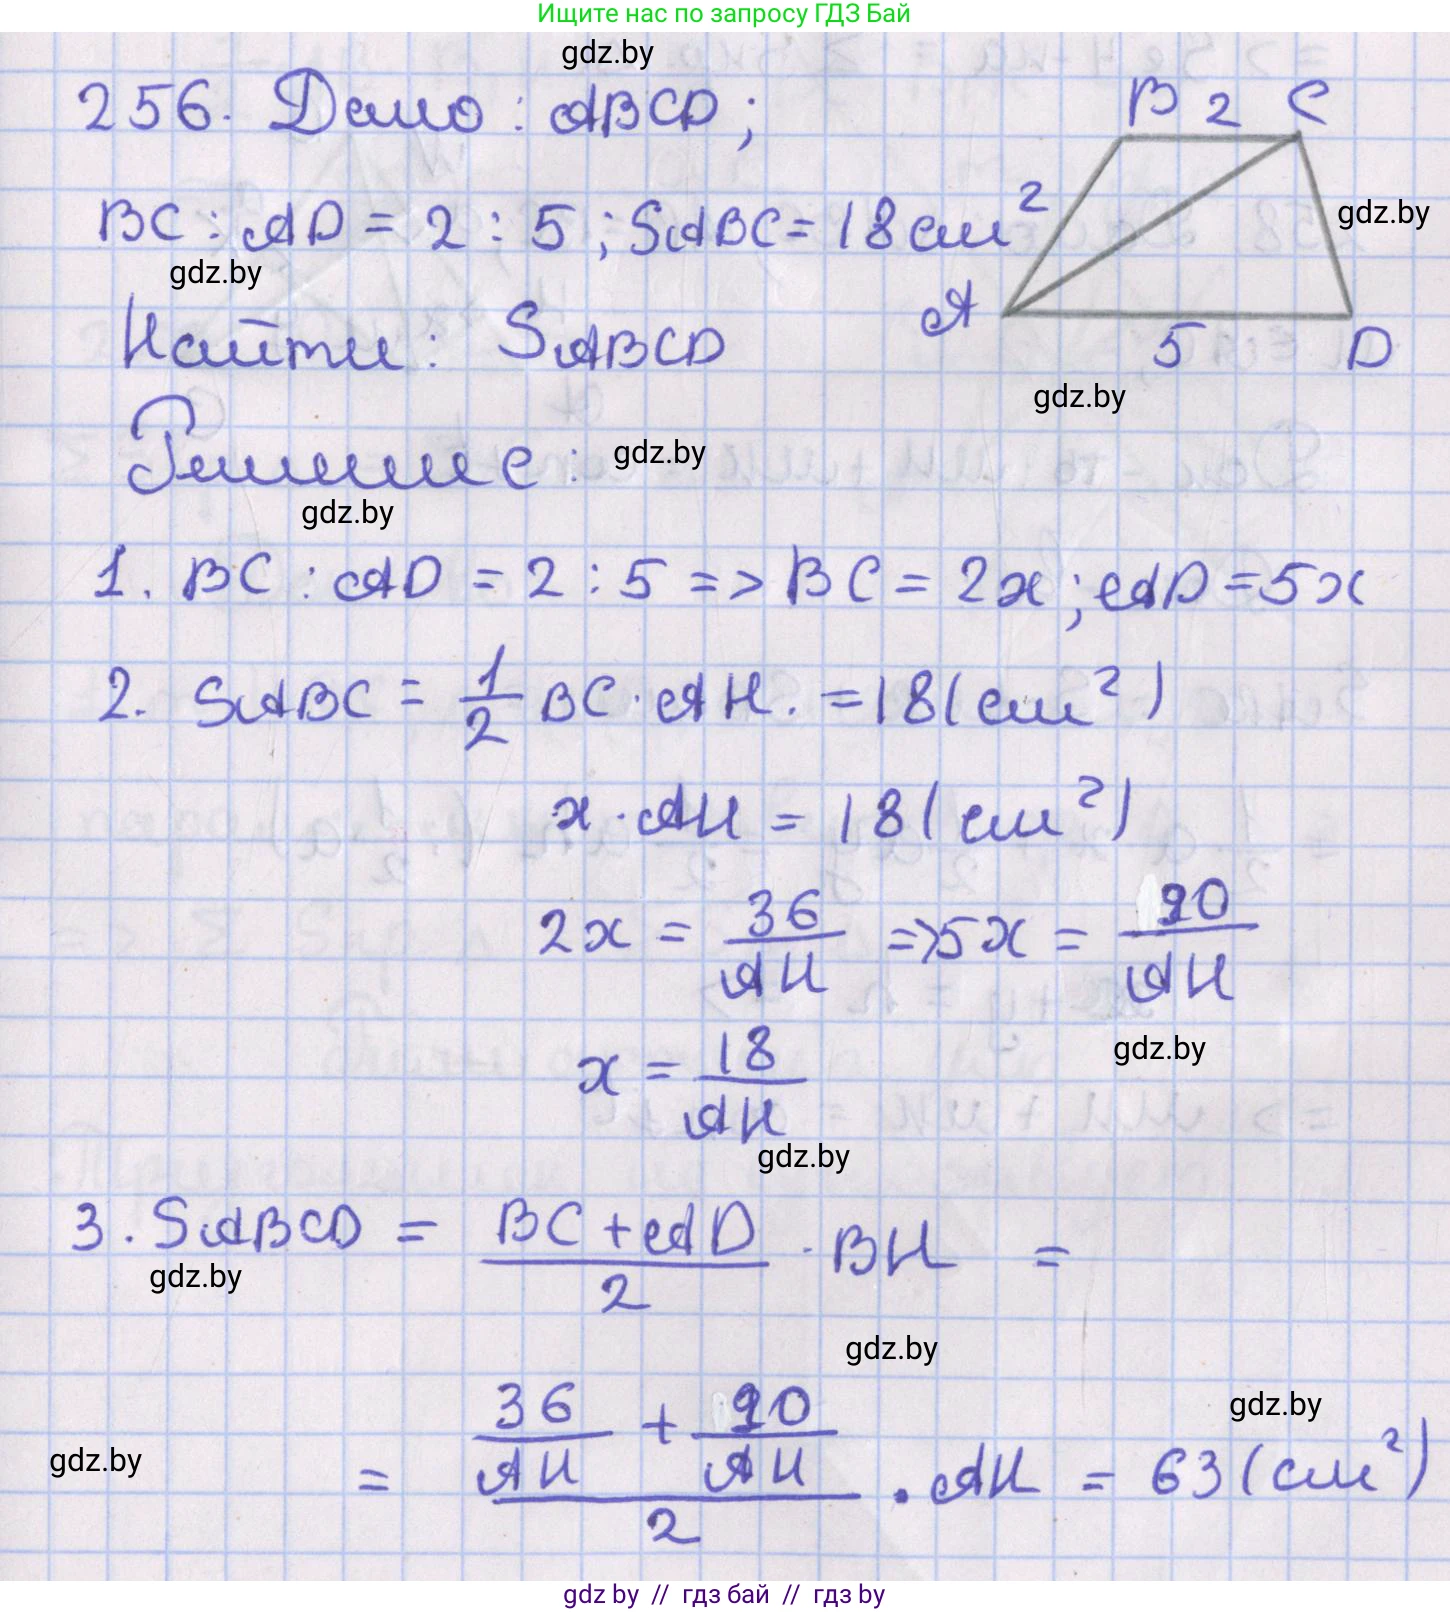 Ищите нас по запросу ГДЗ Бай
gdz.by
256. Дано: ABCD;
B 2 C
BC : AD = 2 : 5; SABC = 18 см²
gdz.by
gdz.by
A
Найти: SABCD
5 D
gdz.by
Решение:
gdz.by
gdz.by
1. BC : AD = 2 : 5 => BC = 2x; AD = 5x
2. SABC = 1/2 BC · AH. = 18 (см²)
x · AH = 18 (см²)
2x = 36/AH => 5x = 90/AH
x = 18/AH
gdz.by
gdz.by
3. SABCD = (BC + AD)/2 · BH =
gdz.by
gdz.by
gdz.by
= (36/AH + 90/AH)/2 · AH = 63 (см²)
gdz.by
gdz by // гдз бай // гдз by